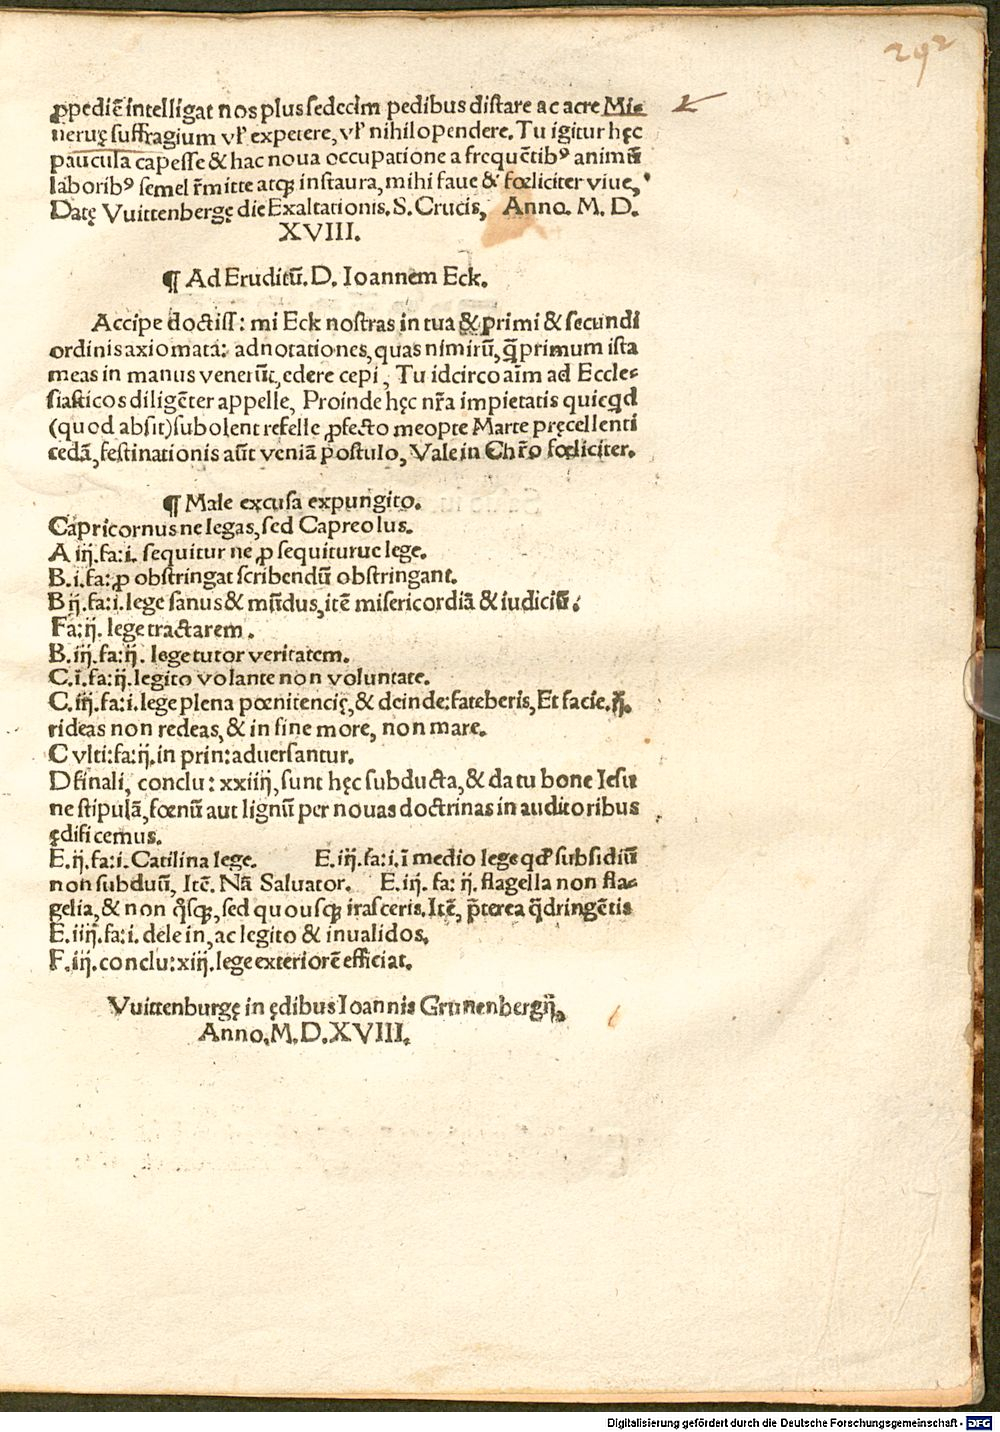 292
ꝓpediē intelligat nos plus sedecim pedibus distare ac acre Mi-
neruę suffragium vľ expetere, vľ nihilo pendere. Tu igitur hęc
paucula capesse & hac noua occupatione a frequētibꝰ animū
laboribꝰ semel r̄mitte atqꝫ instaura, mihi faue & fœliciter viue,
Datę Vuittenbergę die Exaltationis. S. Crucis, Anno. M. D.
XVIII.
¶ Ad Eruditū. D. Ioannem Eck.
Accipe doctiss: mi Eck nostras in tua & primi & secundi
ordinis axiomata: adnotationes, quas nimirū, q̄primum ista
meas in manus venerūt, edere cepi, Tu idcirco aīm ad Eccle-
siasticos diligēter appelle, Proinde hęc nr̄a impietatis quicq̇d
(quod absit) subolent refelle ꝓfecto meopte Marte pręcellenti
cedā, festinationis aūt veniā postulo, Vale in Chr̄o fœliciter.
¶ Male excusa expungito.
Capricornus ne legas, sed Capreolus.
A iij. fa: i. sequitur ne ꝓ sequiturue lege.
B. i. fa: ꝓ obstringat scribendū obstringant.
B ij. fa: i. lege sanus & mūdus, itē misericordiā & iudiciū.
Fa: ij. lege tractarem.
B. iij. fa: ij. lege tutor veritatem.
C. i. fa: ij. legito volante non voluntate.
C. iij. fa: i. lege plena pœnitencię, & deinde: fateberis, Et facie. ij.
rideas non redeas, & in fine more, non mare.
C vlti: fa: ij. in prin: aduersantur.
D finali, conclu: xxiiij, sunt hęc subducta, & da tu bone Iesu
ne stipulā, fœnū aut lignū per nouas doctrinas in auditoribus
ędificemus.
E. ij. fa: i. Catilina lege. E. iij. fa: i. ī medio lege qd̄ subsidiū
non subduū, Itē. Nā Saluator. E. iij. fa: ij. flagella non fla-
gelia, & non q̇sqꝫ, sed quousqꝫ irasceris. Itē, p̄terea q̄dringētis
E. iiij. fa: i. dele in, ac legito & inualidos.
F. iij. conclu: xiij. lege exteriorē efficiat.
Vuittenburgę in ędibus Ioannis Grunenbergij,
Anno. M. D. XVIII.
Digitalisierung gefördert durch die Deutsche Forschungsgemeinschaft - DFG